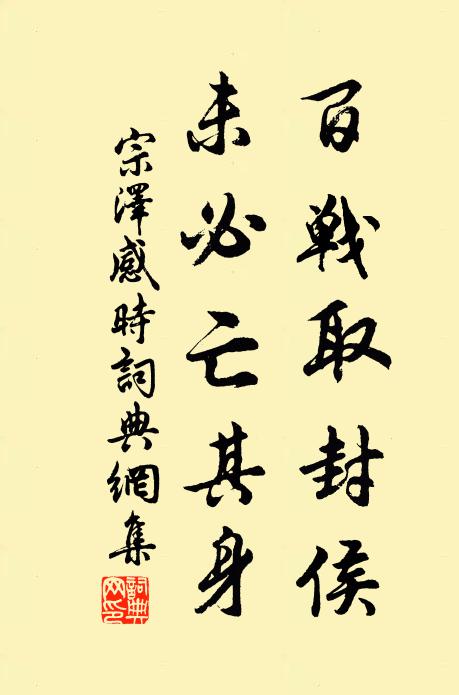 百戦取封侯
未必亡其身
宗澤感時詞典網集
詞典网印